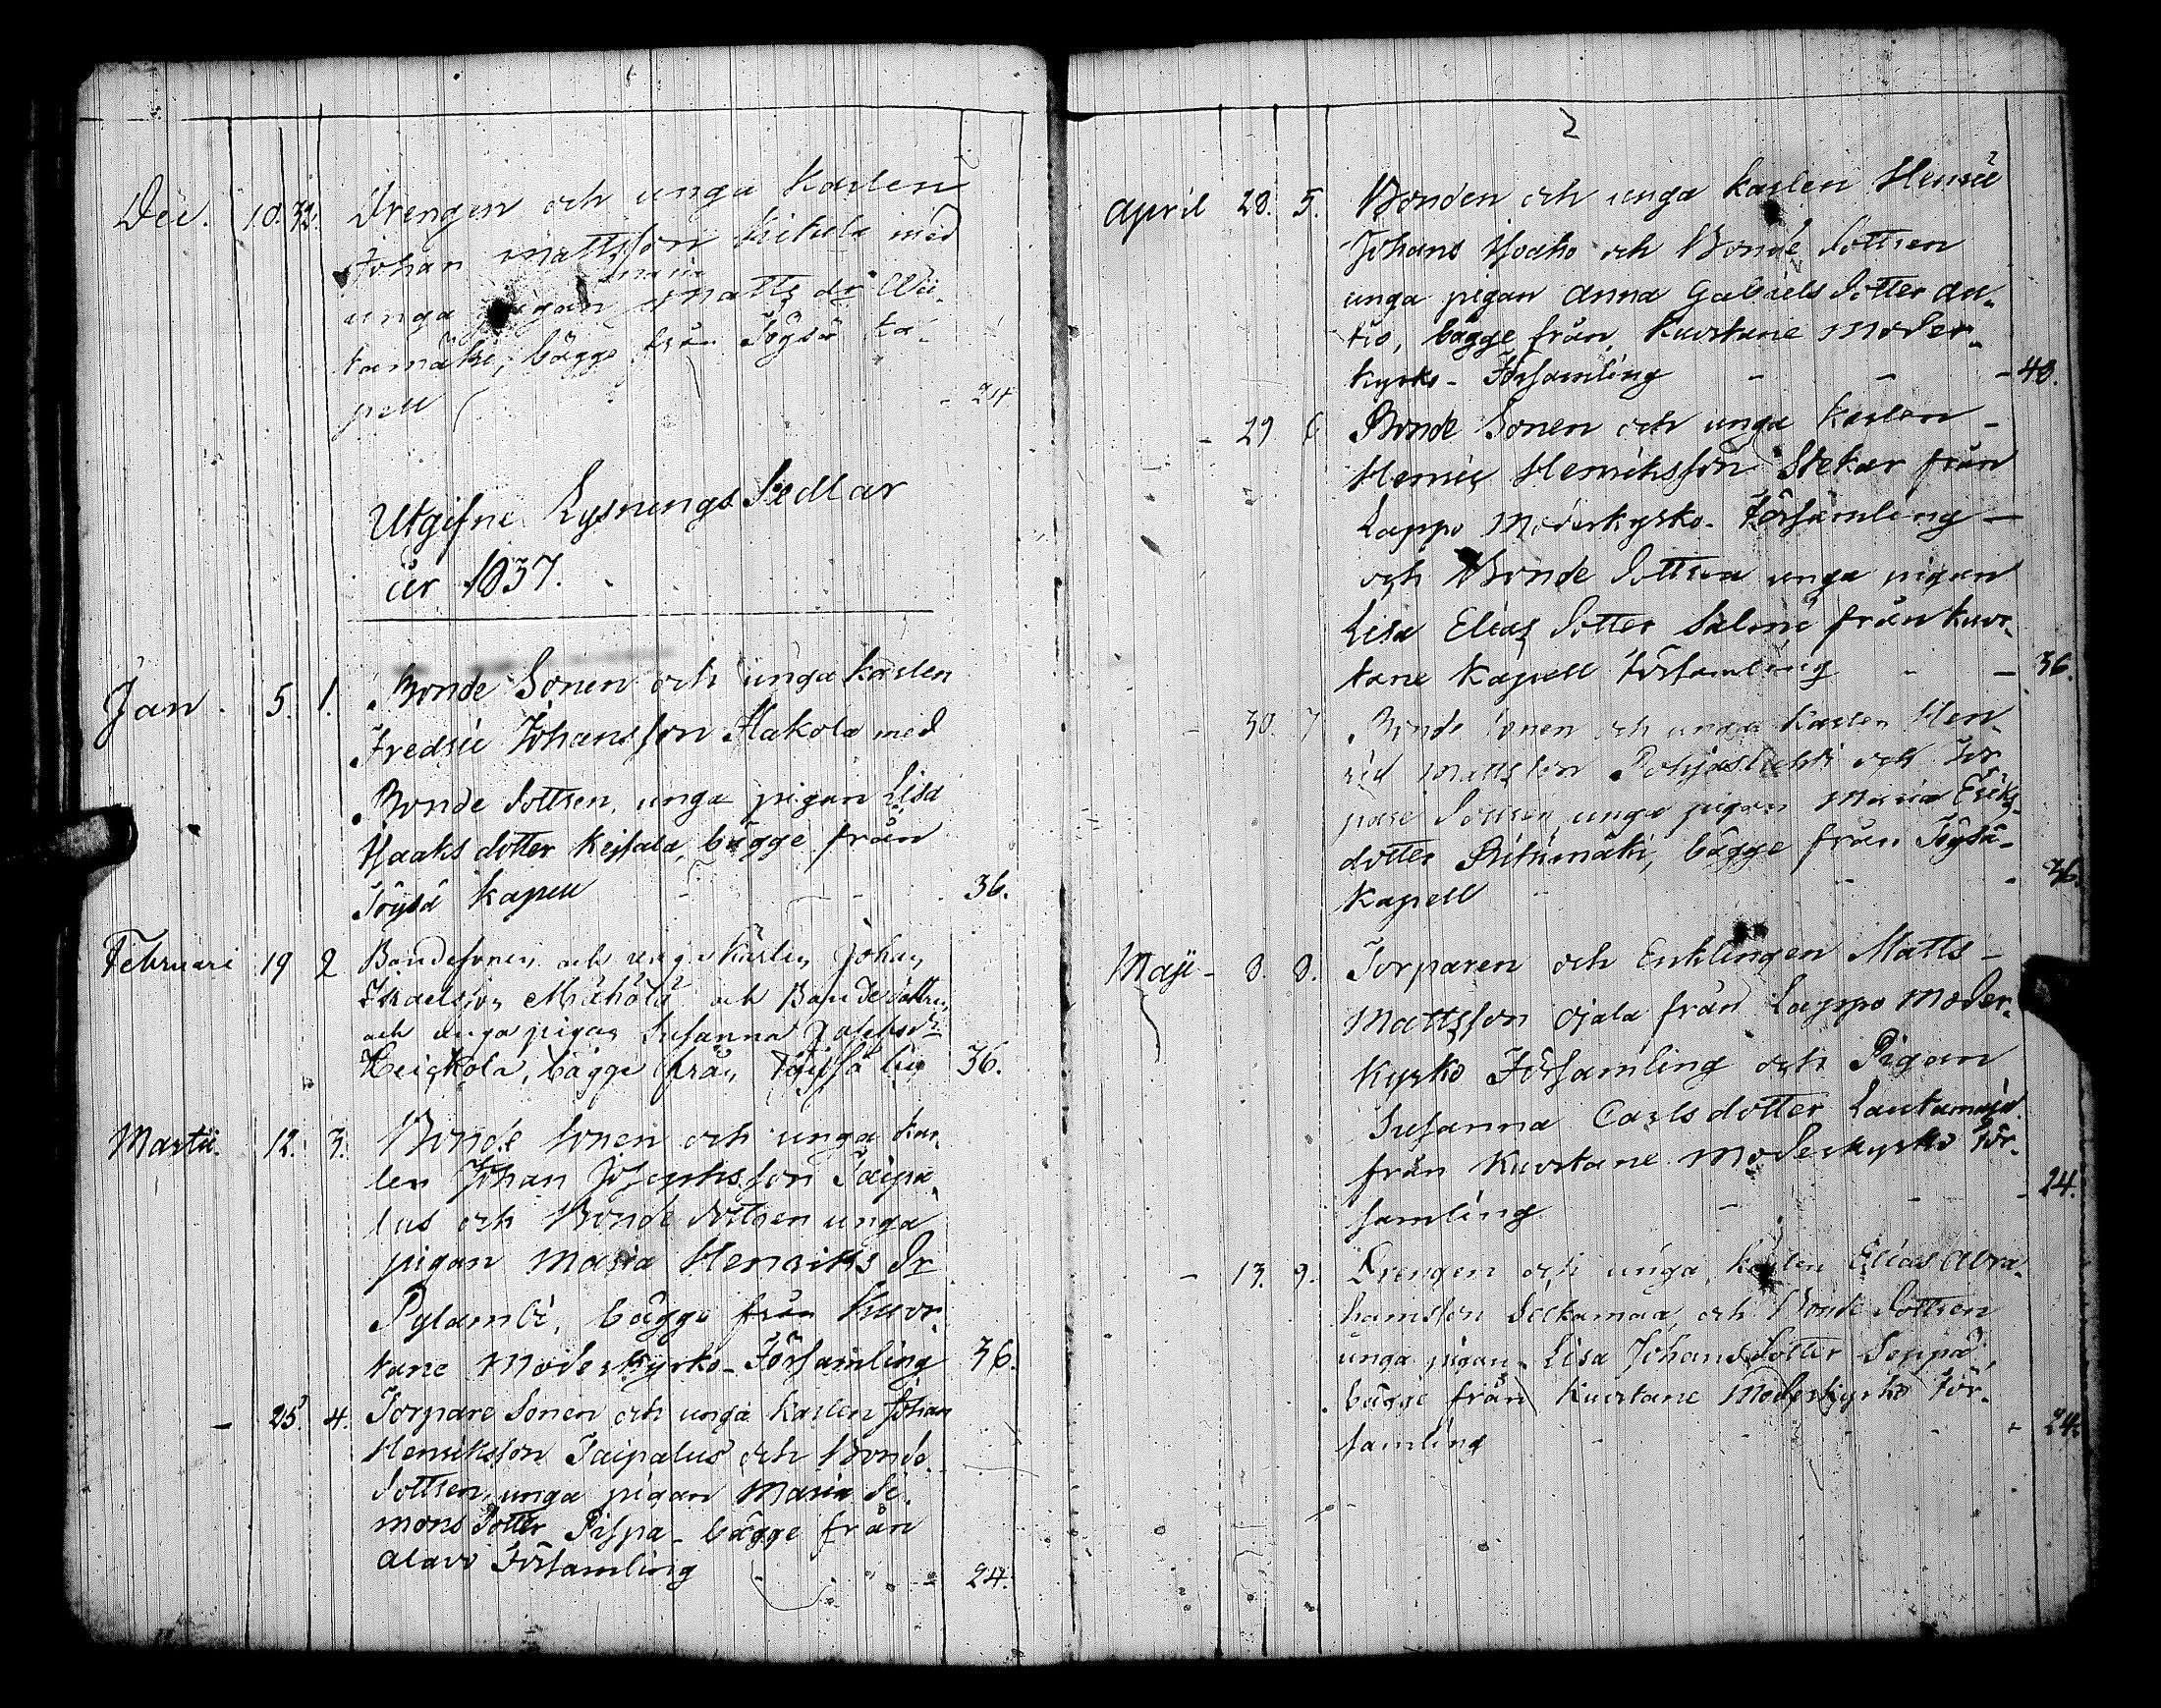 Dec. 10. 32. Drengen och unga Karlen
Johan Mattsson Kikola med
unga pigan Maria Matts dr
tamäki, bägge från Töysä Ka-
pell - 24
Utgifne Lysnings Sedlar
år 1837.
Jan. 5. 1. Bonde Sonen och unga karlen
Fredric Johansson Hakola med
Bonde Dottren, unga pigan Lisa
Isaaks dotter Keisala, bägge från
Töysä Kapell - - - 36.
Februari 19 2 Bondesonen och unga Karlen Johan
Isracison och Bondedottren
och unga pigan Susanna Jakobsdr
Heickola, bägge från 36.
Martii. 12. 3. Bonde Sonen och unga Kar-
len Johan Josephsson Taipa-
lus och Bonde dottren unga
pigan Maria Henriks Dr
Pylambi, bägge från Kuor-
tane Moderkyrko-Församling 36.
- 25. 4. Torpare Sonen och unga karlen Johan
Henriksson Taipalus och Bonde
Dottren, unga pigan Maria Si-
mons Dotter Pispa - bägge från
Alavo Församling - - 24.
2
April 28. 5. Bonden och unga karlen Henric
Johans Hoaho och Bonde Dottren
unga pigan Anna Gabriels Dotter An-
tus, bägge från Kuortane Moder-
kyrko-Församling - - - 48.
- 29 6 Bonde Sonen och unga karlen -
Henric Henriksson Stekar från
Lappo Moderkyrko-Församling -
och Bonde Dottren unga pigan
Lisa Elias Dotter Salmi från Kuor-
tane Kapell Församling - - 36.
- 30. 7 Bonde Sonen och unga Karlen Hen-
ric Mattsson Pohjaslahti och Tor-
pare Dottren, unga pigan Maria Eriks-
dotter Riihimäki, bägge från Töysä-
Kapell - - - 36.
Maji - 8. 8. Torparen och Enklingen Matts -
Mattsson Ojala från Lappo Moder-
kyrko Församling och Pigan
Susanna Carlsdotter Lautamaja
från Kuortane Moderkyrko För-
samling - - - 24.
- 13. 9. Drengen och unga karlen Elias Abra-
hamsson Seckamaa, och Bonde Dottren
unga pigan Lisa Johansdotter Seppä,
bägge från Kuortane Moderkyrko För-
samling - - - - - 24